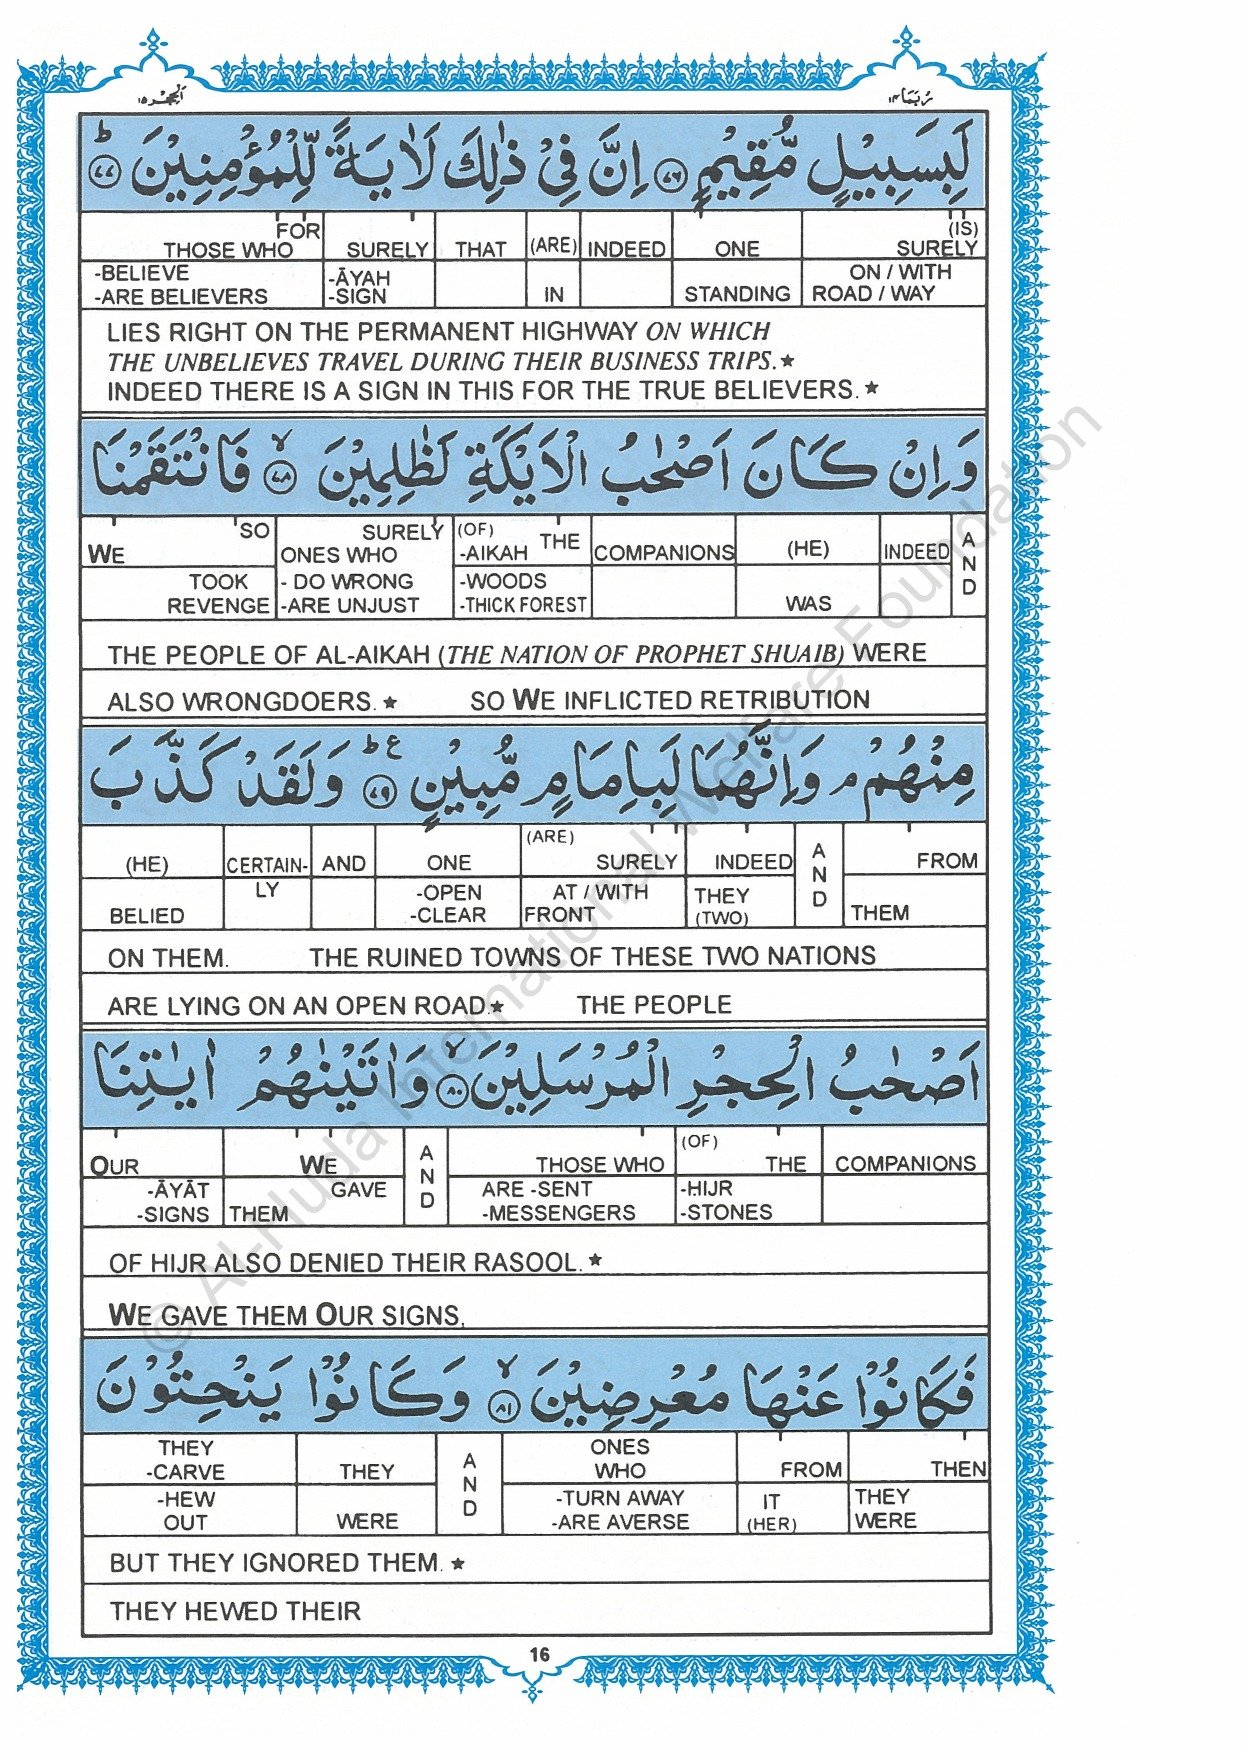 اَلْحِجْر ١٥
رُبَمَا ١٤
لَبِسَبِيْلٍ مُّقِيْمٍ ﴿٧٦﴾ اِنَّ فِيْ ذٰلِكَ لَاٰيَةً لِّلْمُؤْمِنِيْنَ ﴿٧٧﴾ ؕ
FOR (IS)
THOSE WHO SURELY THAT (ARE) INDEED ONE SURELY
-BELIEVE -ĀYAH ON / WITH
-ARE BELIEVERS -SIGN IN STANDING ROAD / WAY
LIES RIGHT ON THE PERMANENT HIGHWAY ON WHICH
THE UNBELIEVES TRAVEL DURING THEIR BUSINESS TRIPS.★
INDEED THERE IS A SIGN IN THIS FOR THE TRUE BELIEVERS.★
وَاِنْ كَانَ اَصْحٰبُ الْاَيْكَةِ لَظٰلِمِيْنَ ﴿٧٨﴾ ۙ فَانْتَقَمْنَا
SO SURELY (OF) THE
WE ONES WHO -AIKAH COMPANIONS (HE) INDEED AND
TOOK - DO WRONG -WOODS
REVENGE -ARE UNJUST -THICK FOREST WAS
THE PEOPLE OF AL-AIKAH (THE NATION OF PROPHET SHUAIB) WERE
ALSO WRONGDOERS. ★ SO WE INFLICTED RETRIBUTION
مِنْهُمْ ۘ وَاِنَّهُمَا لَبِاِمَامٍ مُّبِيْنٍ ﴿٧٩﴾ ؕ ع وَلَقَدْ كَذَّبَ
(ARE)
(HE) CERTAIN- AND ONE SURELY INDEED AND FROM
LY -OPEN AT / WITH THEY
BELIED -CLEAR FRONT (TWO) THEM
ON THEM. THE RUINED TOWNS OF THESE TWO NATIONS
ARE LYING ON AN OPEN ROAD.★ THE PEOPLE
اَصْحٰبُ الْحِجْرِ الْمُرْسَلِيْنَ ﴿٨٠﴾ ۙ وَاٰتَيْنٰهُمْ اٰيٰتِنَا
(OF)
OUR WE AND THOSE WHO THE COMPANIONS
-ĀYĀT GAVE ARE -SENT -HIJR
-SIGNS THEM -MESSENGERS -STONES
OF HIJR ALSO DENIED THEIR RASOOL.★
WE GAVE THEM OUR SIGNS,
فَكَانُوْا عَنْهَا مُعْرِضِيْنَ ﴿٨١﴾ ۙ وَكَانُوْا يَنْحِتُوْنَ
THEY ONES
-CARVE THEY AND WHO FROM THEN
-HEW -TURN AWAY IT THEY
OUT WERE -ARE AVERSE (HER) WERE
BUT THEY IGNORED THEM. ★
THEY HEWED THEIR
16
© Al-Huda International Welfare Foundation